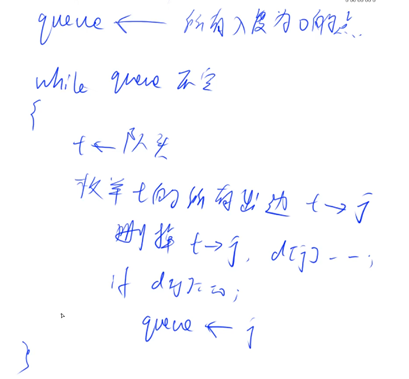 queue ← 所有入度为0的点.
while queue 不空
{
t ← 队头
枚举t的所有出边 t → j
删掉 t → j, d[j] --;
if d[j] == 0;
queue ← j
}